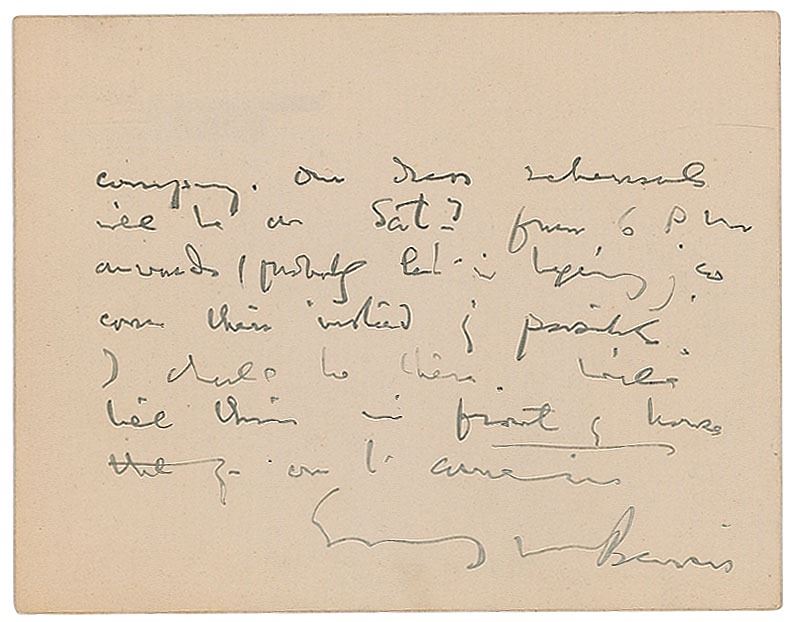 company. Our dress rehearsals
will be on Satd from 6 P.M.
onwards (probably late in beginning) so
come then instead if possible
I shall be there. Will
tell them in front of house
the you are to come in
Barrie